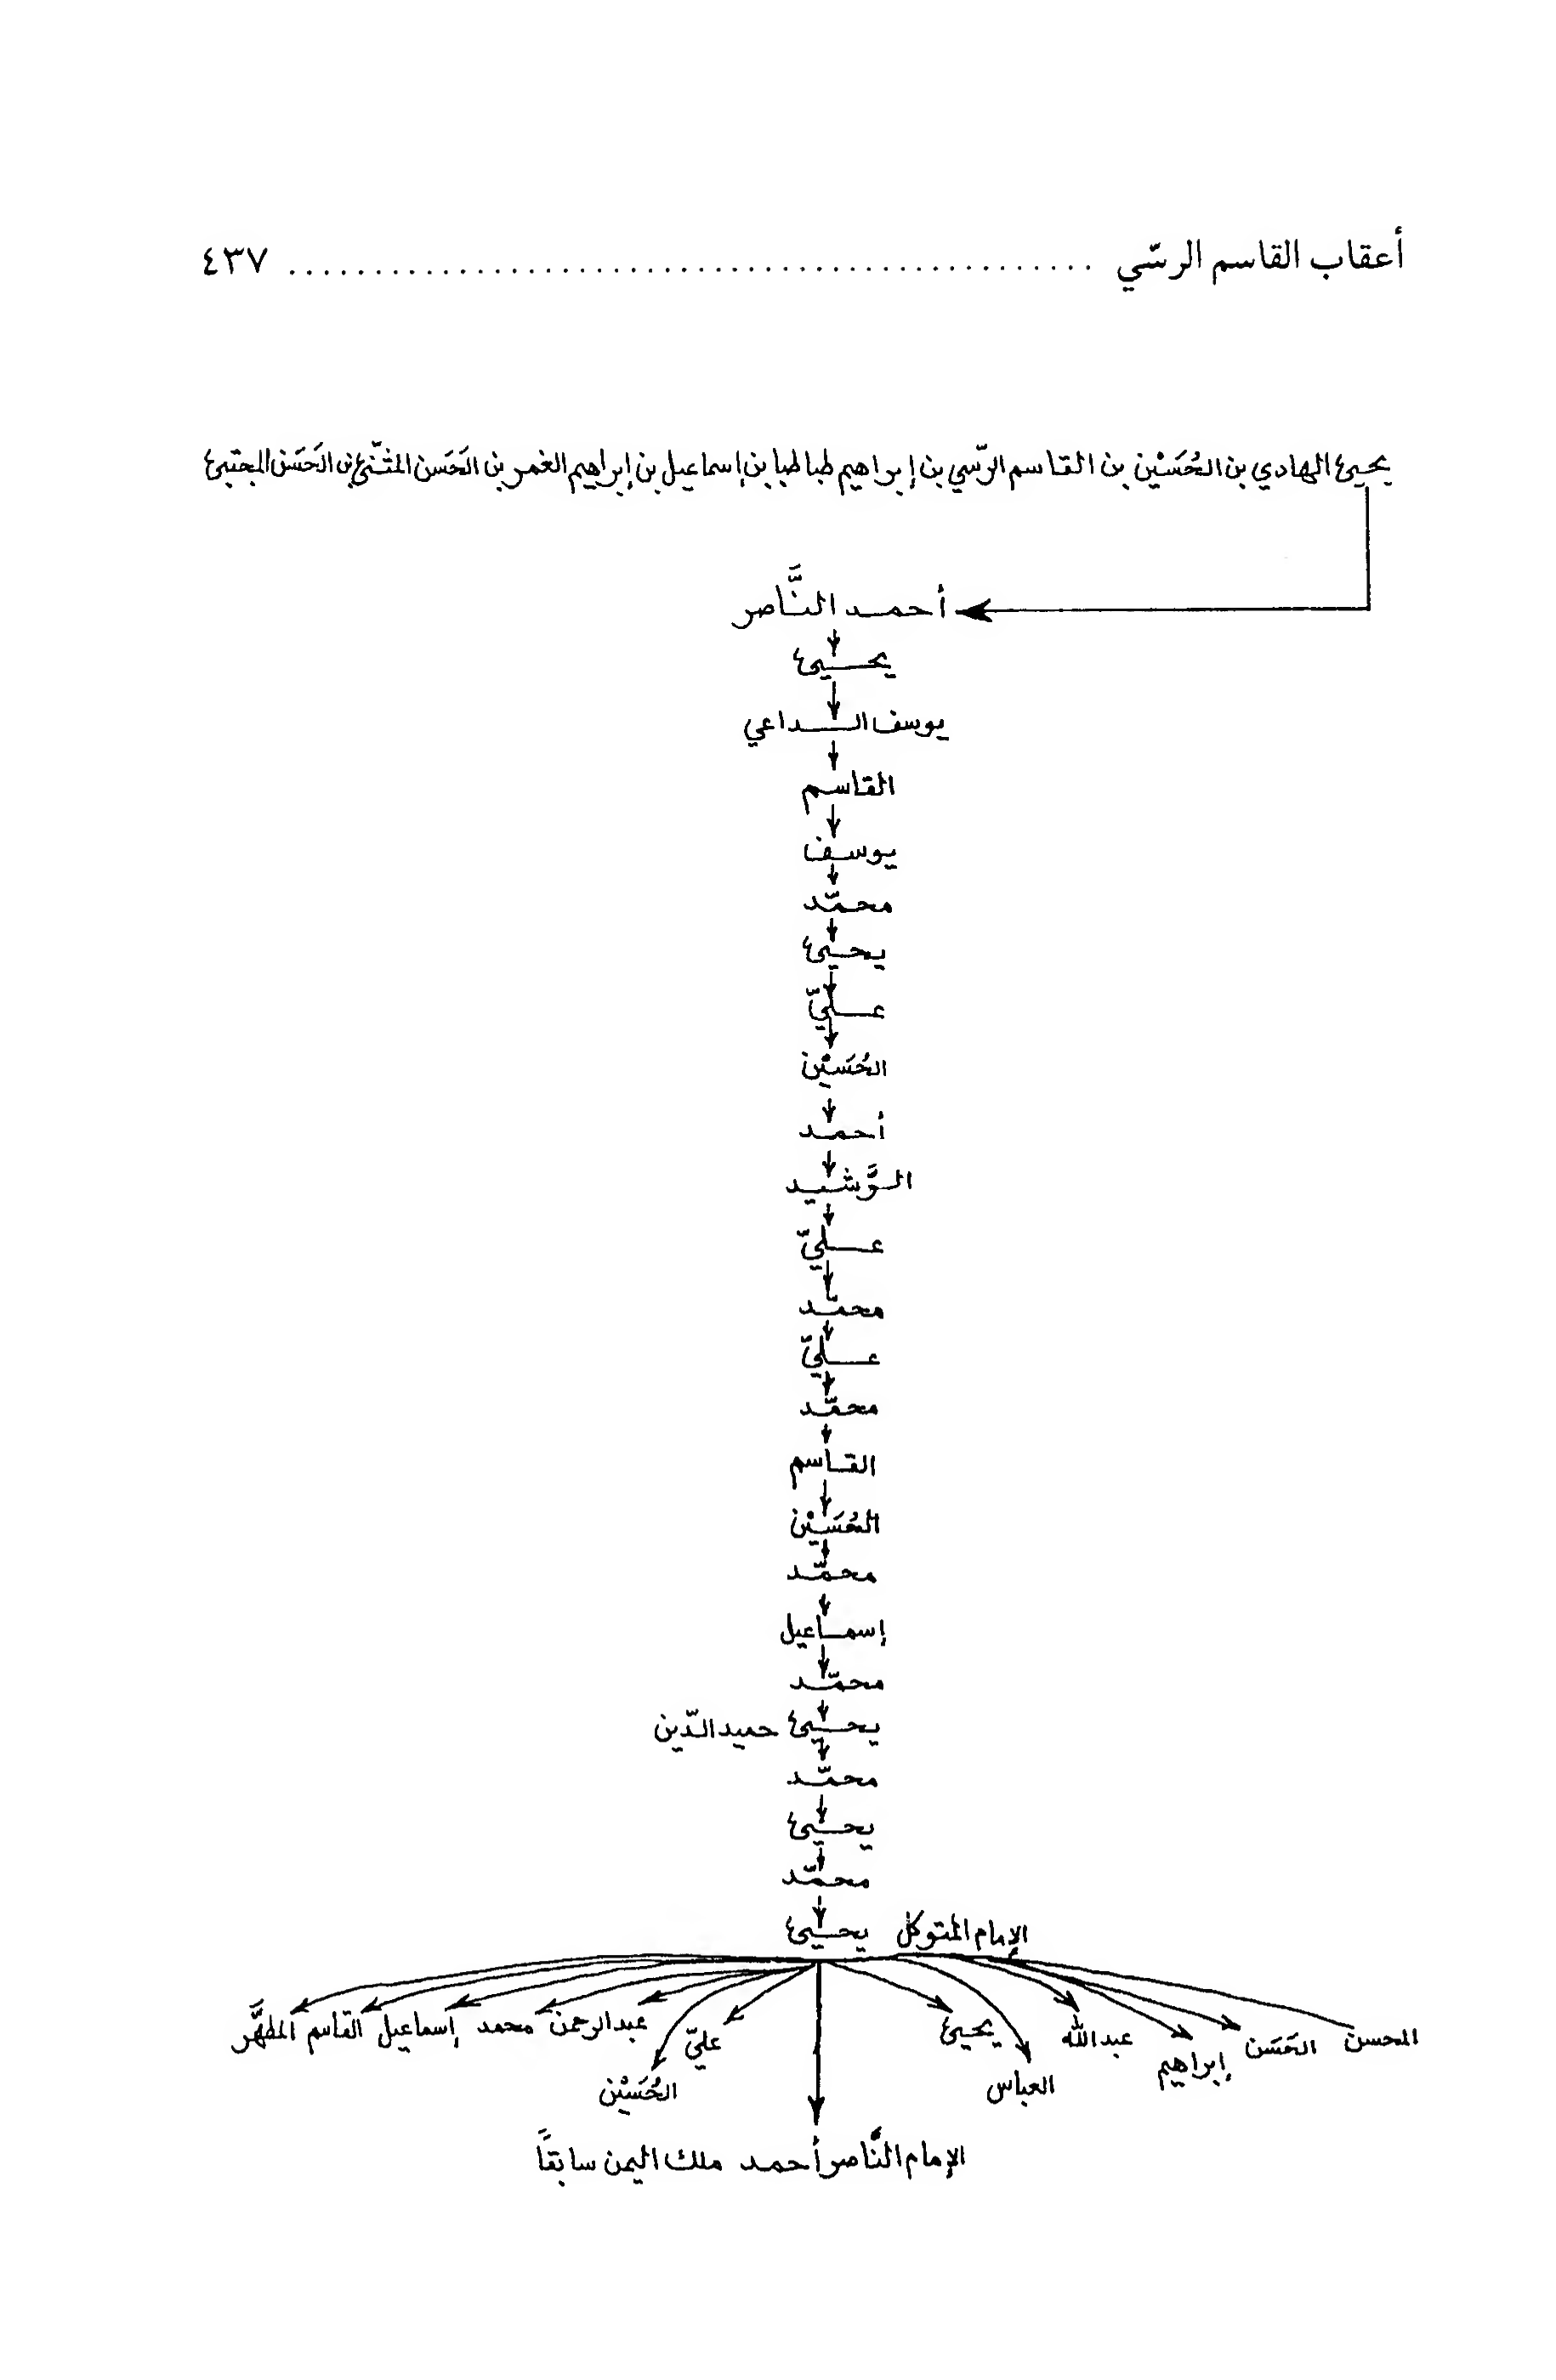 أعقاب القاسم الرسّي ................................................ ٤٣٧
يحيىٰ الهادي بن الحُسَيْن بن القاسم الرّسي بن إبراهيم طباطبا بن إسماعيل بن إبراهيم الغمر بن الحَسَن المثنّىٰ بن الحَسَن المجتبىٰ
أحمد النَّاصر
يحيىٰ
يوسف الداعي
القاسم
يوسف
محمّد
يحيىٰ
عليّ
الحُسَيْن
أحمد
الرَّشيد
عليّ
محمّد
عليّ
محمّد
القاسم
الحُسَيْن
محمّد
إسماعيل
محمّد
يحيىٰ حميد الدّين
محمّد
يحيىٰ
محمّد
الإمام المتوكل يحيىٰ
المحسن
الحَسَن
إبراهيم
عبدالله
العباس
يحيىٰ
عليّ
الحُسَيْن
عبدالرحمن
محمد
إسماعيل
القاسم
المطهَّر
الإمام النَّاصر أحمد ملك اليمن سابقاً